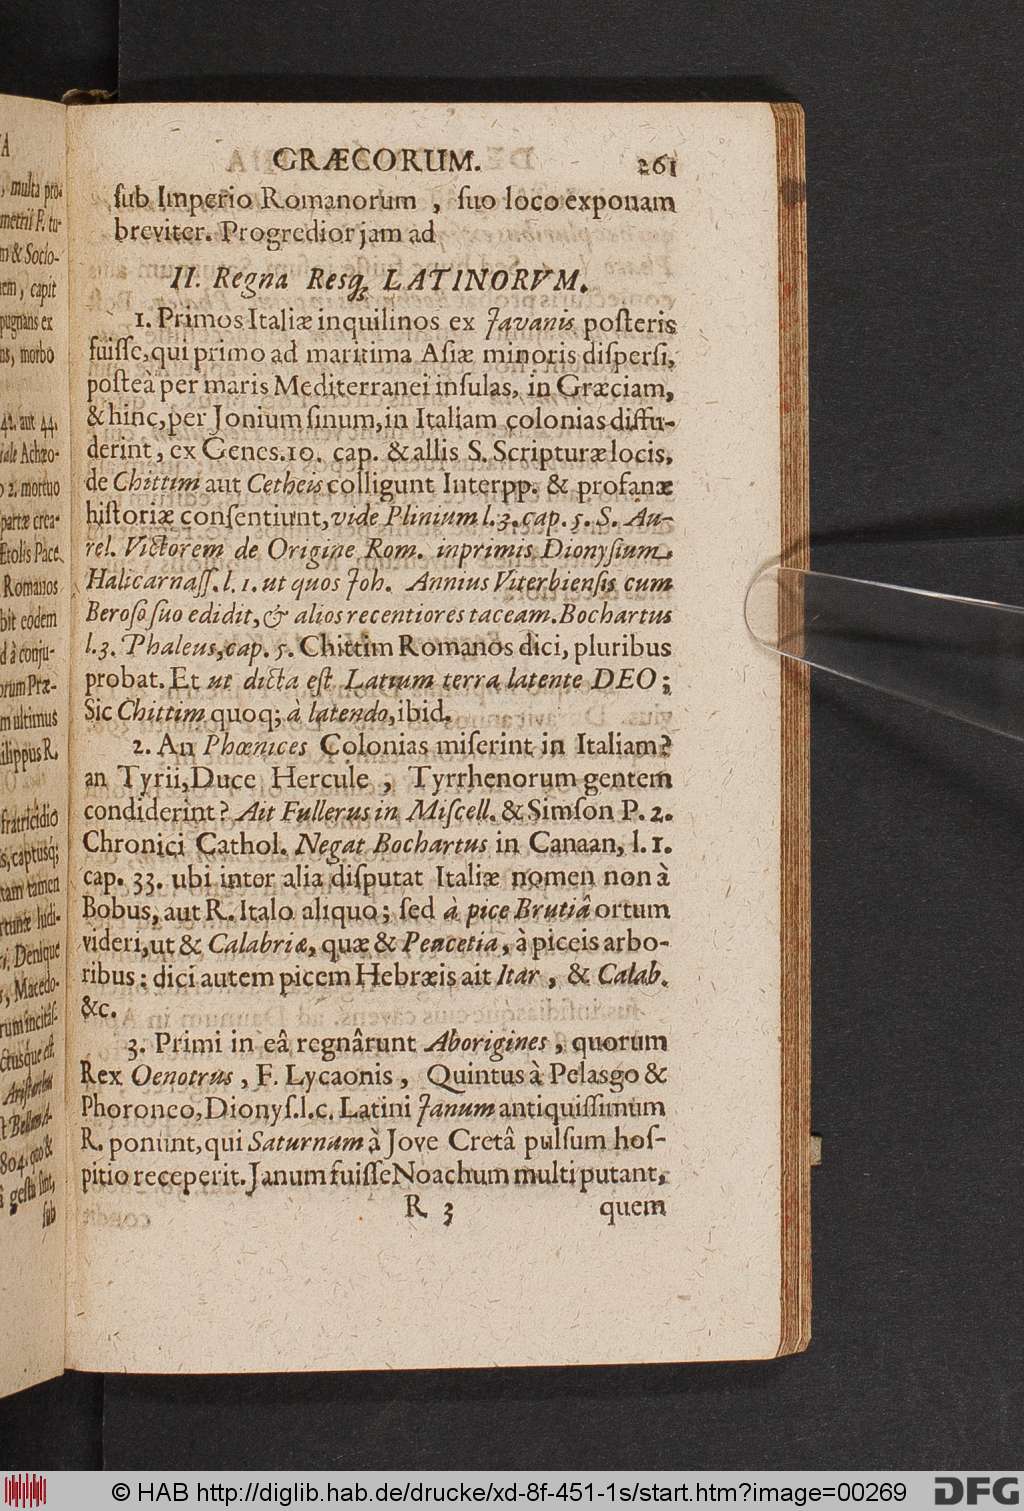 GRÆCORUM. 261
ſub Imperio Romanorum , ſuo loco exponam
breviter. Progredior jam ad
II. Regna Resq; LATINORVM.
1. Primos Italiæ inquilinos ex Javanis poſteris
fuiſſe, qui primo ad maritima Aſiæ minoris diſperſi,
poſteà per maris Mediterranei inſulas, in Græciam,
& hinc, per Jonium ſinum, in Italiam colonias diffu-
derint, ex Genes. 10. cap. & allis S. Scripturæ locis,
de Chittim aut Cetheis colligunt Interpp. & profanæ
hiſtoriæ conſentiunt, vide Plinium l. 3. cap. 5. S. Au-
rel. Victorem de Origine Rom. inprimis Dionyſium
Halicarnaſſ. l. 1. ut quos Joh. Annius Viterbienſis cum
Beroſo ſuo edidit, & alios recentiores taceam. Bochartus
l. 3. Phaleus, cap. 5. Chittim Romanos dici, pluribus
probat. Et ut dicta eſt Latium terra latente DEO;
Sic Chittim quoq; à latendo, ibid.
2. An Phœnices Colonias miſerint in Italiam?
an Tyrii, Duce Hercule , Tyrrhenorum gentem
condiderint? Ait Fullerus in Miſcell. & Simſon P. 2.
Chronici Cathol. Negat Bochartus in Canaan, l. 1.
cap. 33. ubi inter alia diſputat Italiæ nomen non à
Bobus, aut R. Italo aliquo; ſed à pice Brutiâ ortum
videri, ut & Calabriæ, quæ & Peucetia, à piceis arbo-
ribus: dici autem picem Hebræis ait Itar , & Calab.
&c.
3. Primi in eâ regnârunt Aborigines , quorum
Rex Oenotrus , F. Lycaonis , Quintus à Pelasgo &
Phoroneo, Dionyſ. l. c. Latini Janum antiquiſſimum
R. ponunt, qui Saturnum à Jove Cretâ pulſum hoſ-
pitio receperit. Janum fuiſſe Noachum multi putant,
R 3 quem
© HAB http://diglib.hab.de/drucke/xd-8f-451-1s/start.htm?image=00269
DFG